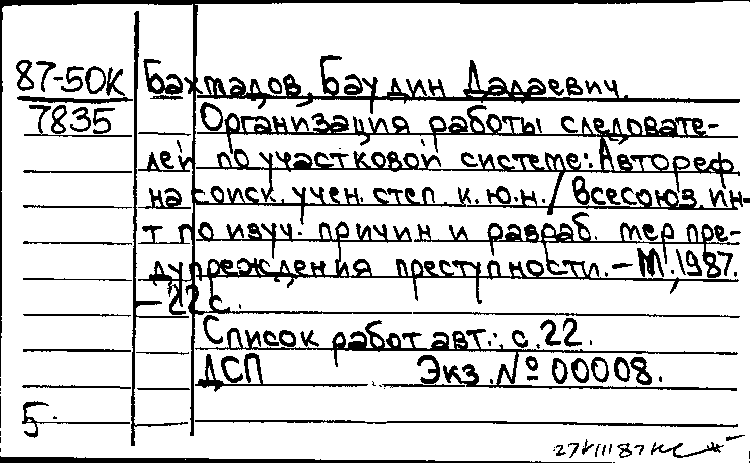 87-50К Бахмадов, Баудин Дадаевич.
7835 Организация работы следовате-
лей по участковой системе: Автореф.
на соиск. учен. степ. к.ю.н. / Всесоюз. ин-
т по изуч. причин и разраб. мер пре-
дупреждения преступности. – М., 1987.
– 22 с.
Список работ авт.: с. 22.
ДСП Экз. № 00008.
5.